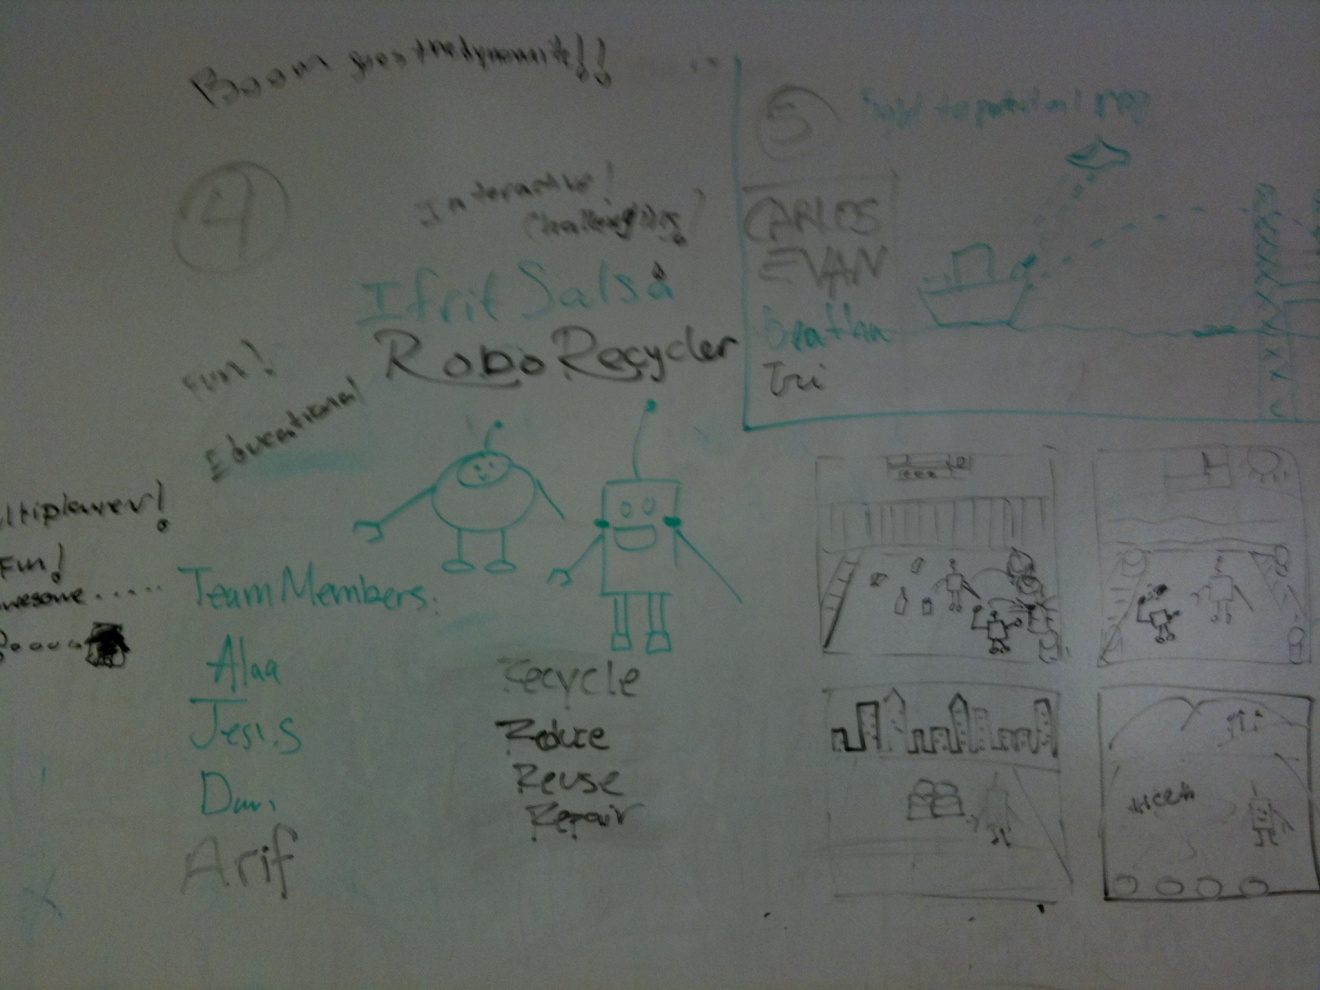 Boom goes the dynamite!!
4
Interactive!
Challenging!
Ifrit Salsa
Robo Recycler
Fun!
Educational
ltiplayer!
Fun!
wesome.....
Team Members:
Alaa
Dani
Arif
Recycle
Reduce
Reuse
Repair
5
CARLOS
EVAN
Tri